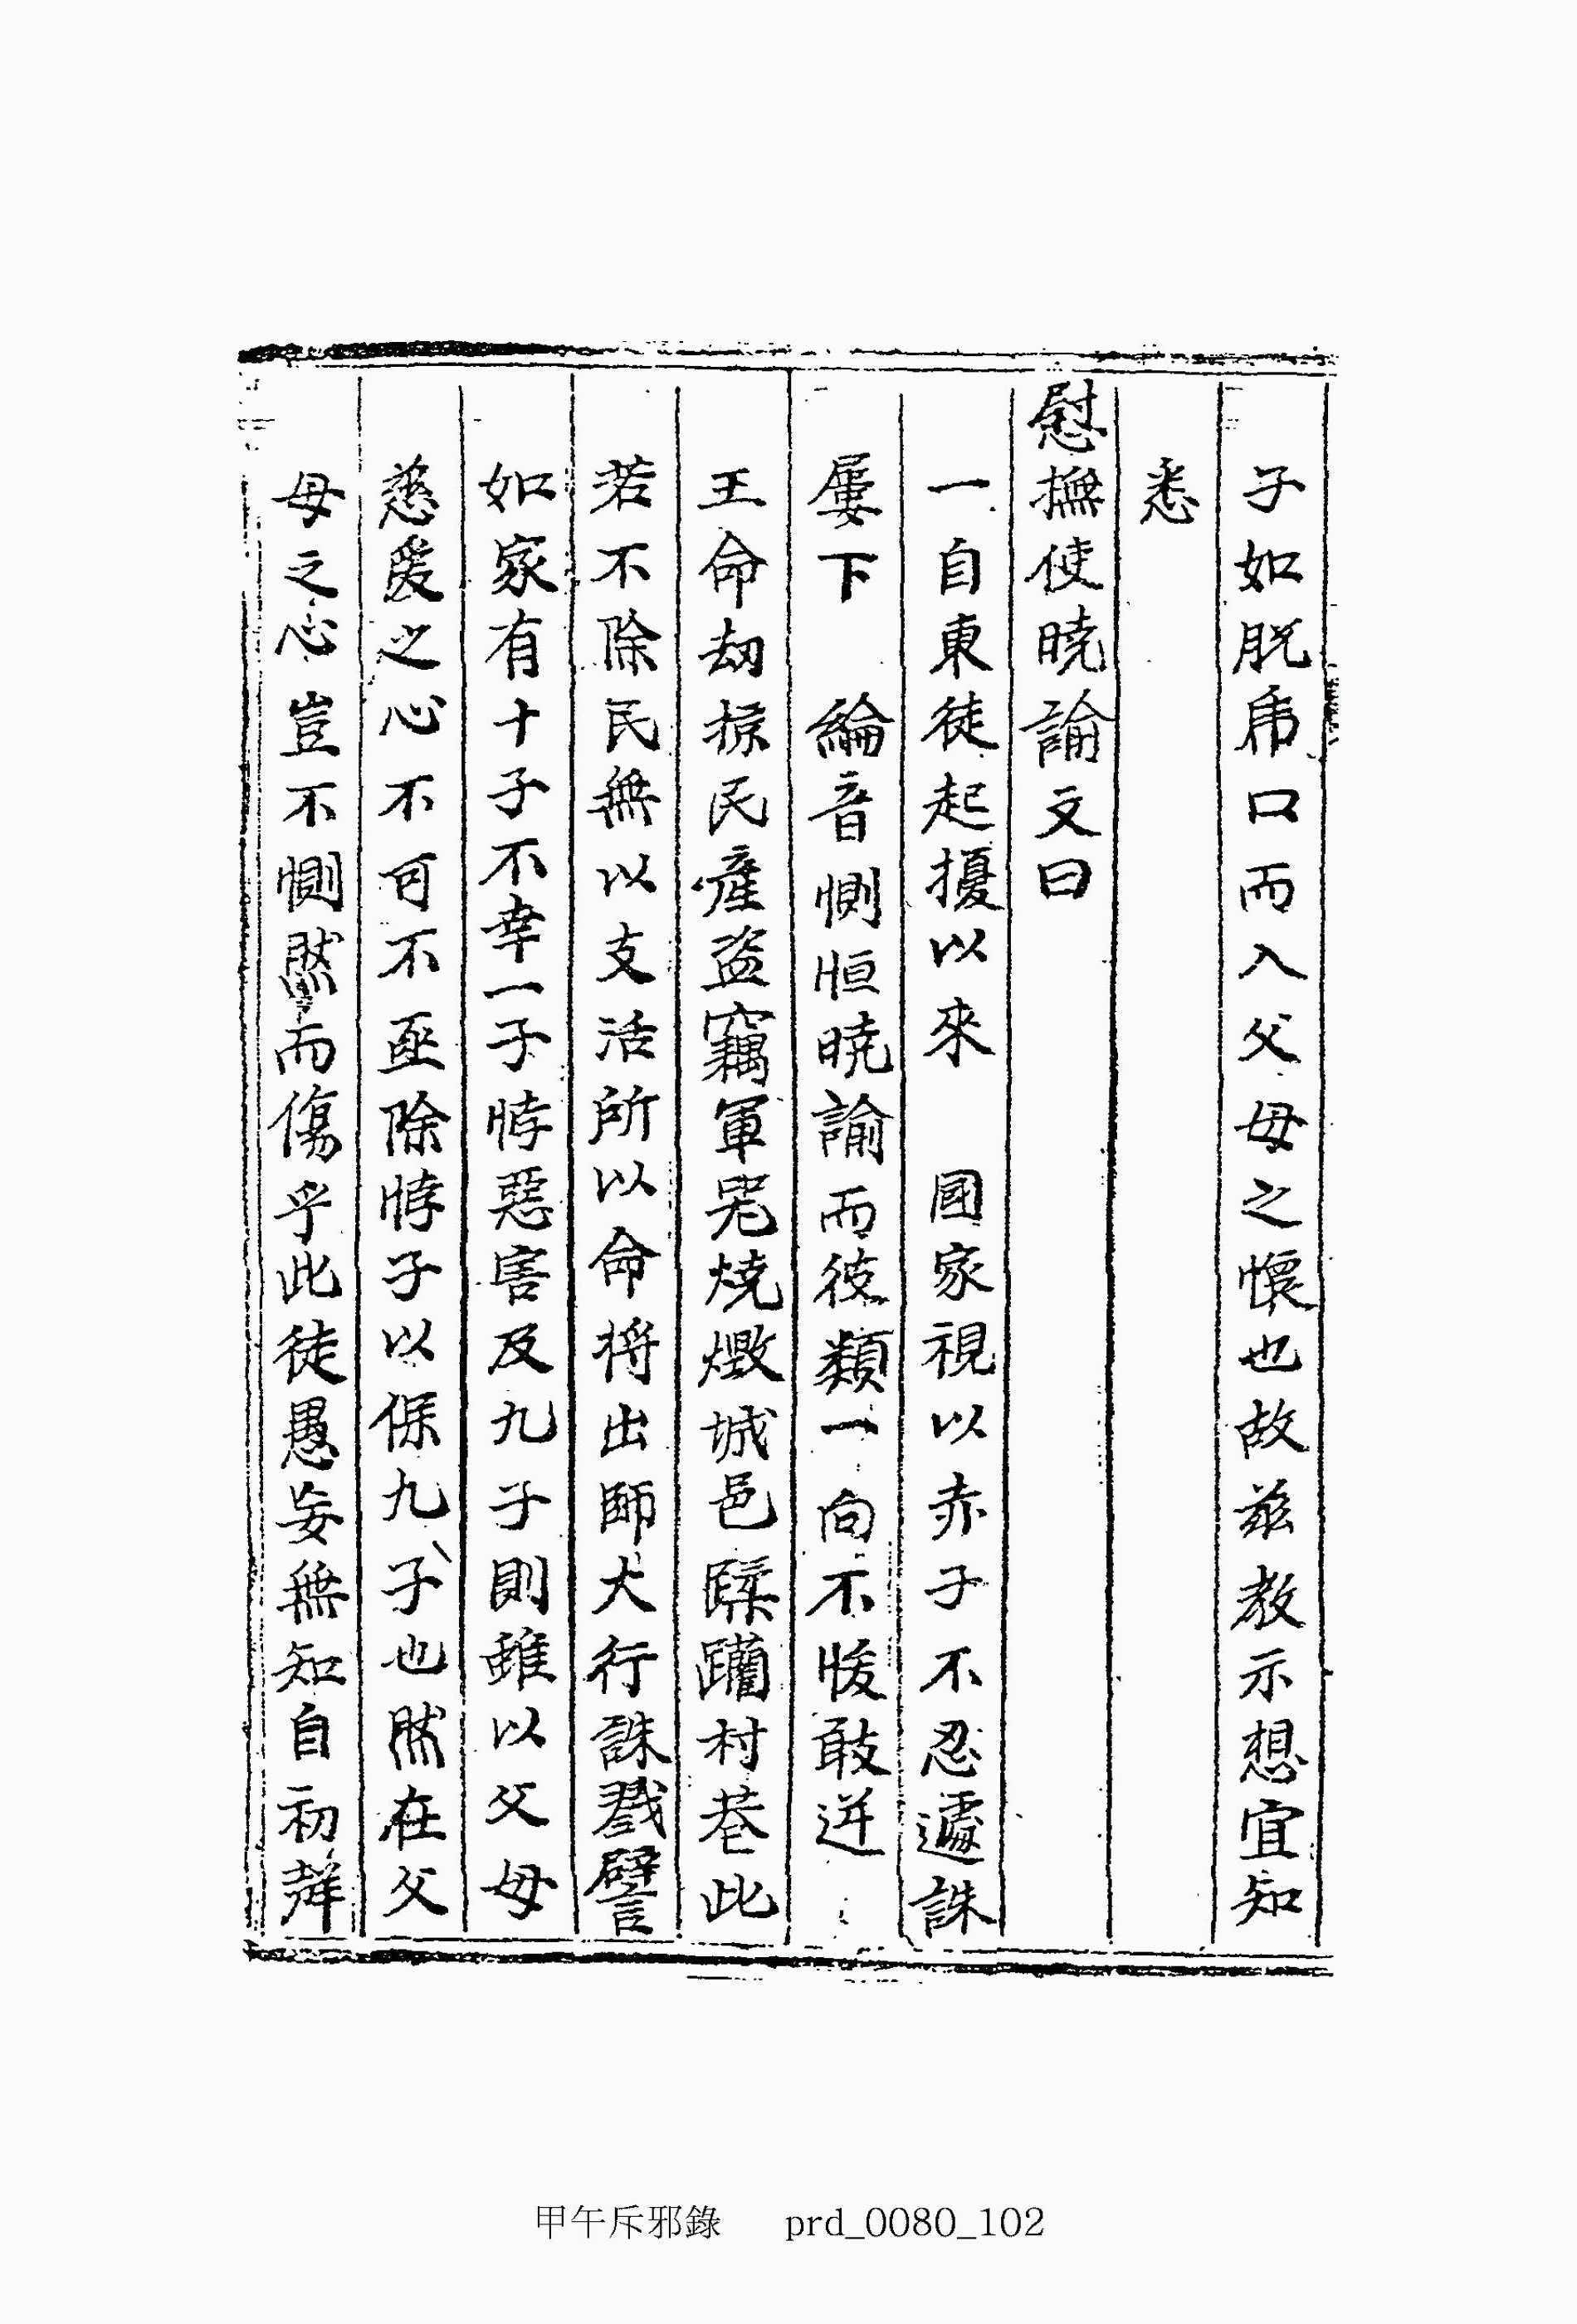 子如脫虎口而入父母之懷也故玆敎示想宜知
悉
慰撫使曉諭文曰
一自東徒起擾以來 國家視以赤子不忍遽誅
屢下 綸音惻怛曉諭而彼類一向不悛敢逆
王命劫掠民産盜竊軍器燒燬城邑蹂躪村巷此
若不除民無以支活所以命將出師大行誅戮譬
如家有十子不幸一子悖惡害及九子則雖以父母
慈愛之心不可不亟除悖子以保九子也然在父
母之心豈不惻然而傷乎此徒愚妄無知自初
甲午斥邪錄 prd_0080_102